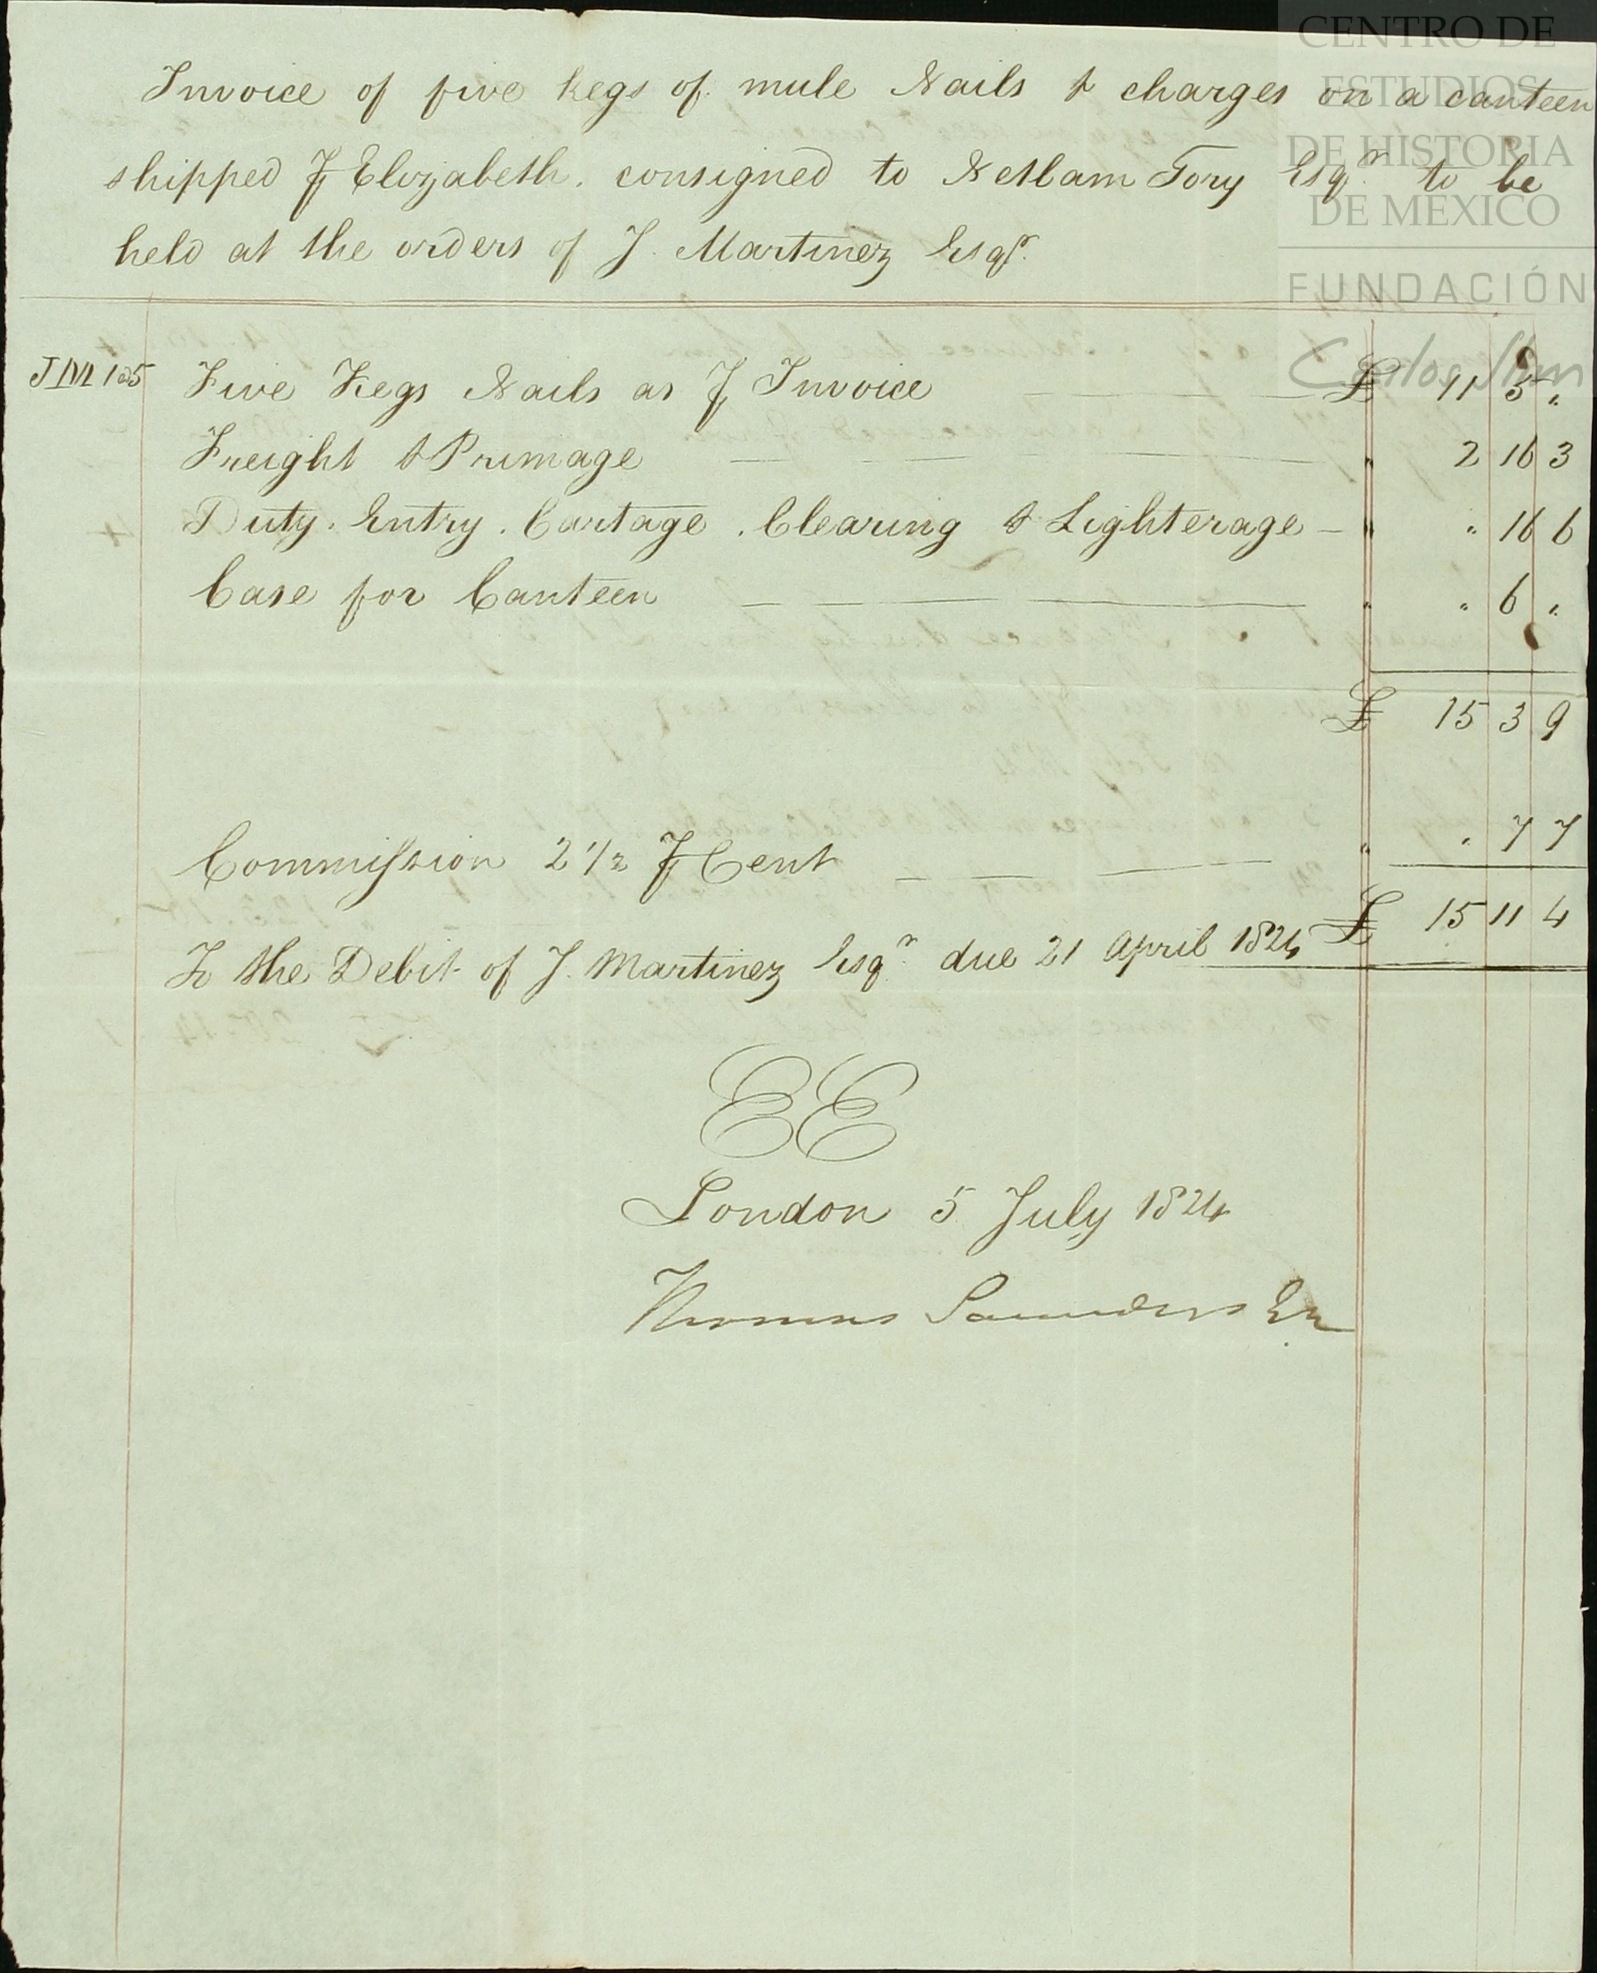 Invoice of five kegs of mule Nails & charges on a canteen
shipped ⅌ Elizabeth. consigned to Netlam Tory Esqr. to be
held at the orders of J. Martinez Esqr.
JM 1@5 Five Kegs Nails as ⅌ Invoice £ 11 5 "
Freight & Primage " 2 16 3
Duty. Entry. Cartage. Clearing & Lighterage " " 16 6
Case for Canteen " " 6 "
£ 15 3 9
Commission 2 1/2 ⅌ Cent " " 7 7
To the Debit of J. Martinez Esqr. due 21 April 1824 £ 15 11 4
EE
London 5 July 1824
Thomas Saunders
CENTRO DE
ESTUDIOS
DE HISTORIA
DE MEXICO
FUNDACIÓN
Carlos Slim